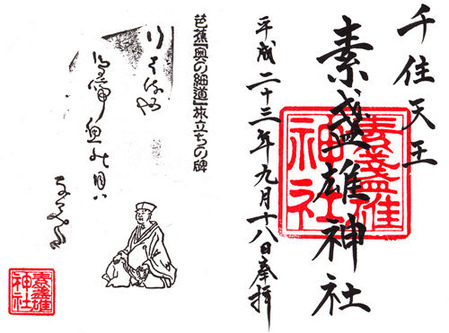 千住天王
素盞雄神社
素盞雄
神社
平成二十三年九月十八日奉拝
芭蕉「奥の細道」旅立ちの碑
行く春や
鳥啼魚の目ハ
なみだ
素盞雄
神社